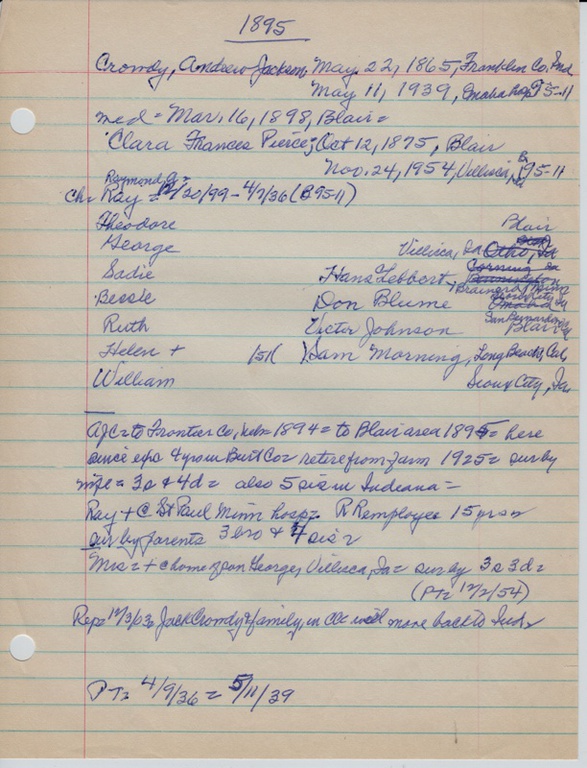 1895
Crowdy, Andrew Jackson, May. 22, 1865, Franklin Co, Ind
May 11, 1939, Omaha hosp
med = Mar. 16, 1898, Blair =
Clara Frances Pierce; Oct 12, 1875, Blair
Nov. 24, 1954, Villisca, 95-11
Raymond
Ch= Ray = 12/20/99 - 4/7/36 (B95-11)
Theodore Blair
George Villisca, Ia
Sadie Hans Lebbert, Corning Ia
Brainerd Minn
Bessie Don Blume Omaha
San Bernardino
Ruth Victor Johnson Blair
Helen + 1st ( ) Sam Morning, Long Beach, Cal
William Sioux City, Ia.
AJC = to Frontier Co, Neb = 1894 = to Blair area 1895 = here
since exc 4 yrs in Burt Co = retire from farm 1925 = sur by
wife = 3 s & 4 d = also 5 sis in Indiana =
Ray + @ St Paul Minn hosp = RR employee 15 yrs =
sur by parents 3 bro & 4 sis =
Mrs = + @ home of son George, Villisca, Ia = sur by 3 s 3 d =
(PT = 12/2/54)
Rep = 12/3/63, Jack Crowdy & family, in will move back to Ind.
PT = 4/9/36 = 5/11/39